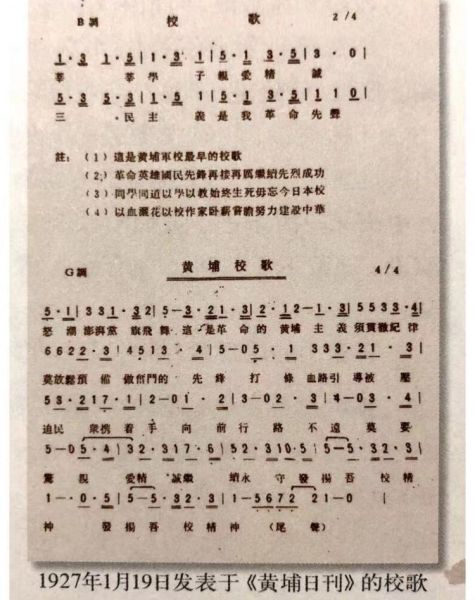 B調 校歌 2/4
1·3 1·5|1·3 1|5·1 3·5|3·0
莘 莘學 子 親愛精 誠
5·3 5·3|1·5 1|5·1 3·5|1 1 0
三 ·民主 義是我革命先聲
註：（1）這是黃埔軍校最早的校歌
（2）革命英雄國民先鋒再接再厲繼續先烈成功
（3）同學同道以學以教始終生死毋忘今日本校
（4）以血灑花以校作家臥薪嘗膽努力建設中華
G調 黃埔校歌 4/4
5·1|331·32|5-3·21·3|2·12-1·3|5533·4|
怒潮澎湃黨 旗飛舞 這是革命的黃埔 主義須貫徹紀律
6622·3|4513·4|5-05·1|333·21·3|
莫放鬆預備 做奮鬥的先鋒 打條血路引導被壓
53·217·1|2-01·2|3-02·3|4-03·4|
迫民 衆携着手 向前行 路不遠 莫要
5-05·4|32·317·6|52·310·5|5-5·32·3|
驚 親 愛精誠繼 續永守 發揚吾校精
1-·05|5-5·32·3|1-567221-0|
神 發揚吾校精神（尾聲）
1927年1月19日发表于《黄埔日刊》的校歌